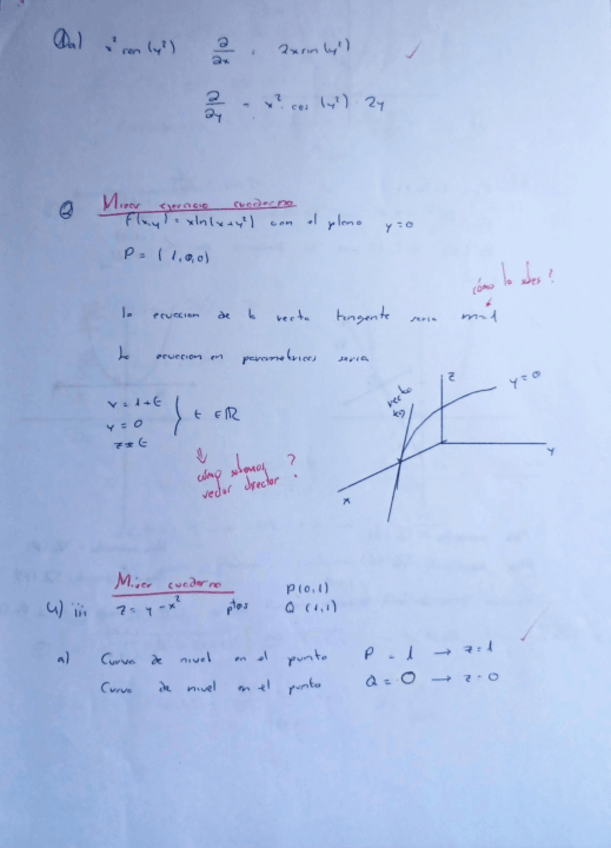 ① a) x² sen (y²) ∂/∂x = 2x sin (y²) ✓
∂/∂y = x² cos (y²) 2y
② Mirar ejercicio cuaderno
f(x,y) = x ln(x+y²) con el plano y=0
P = (1,0,0)
cómo lo sabes?
la ecuacion de la recta tangente seria m=1
La ecuacion en parametricas seria
x = 1+t
y = 0
z = t
} t ∈ ℝ
⇓
cómo sabemos
vector director ?
recta
tg
z
y=0
y
x
Mirar cuaderno
4) iii z = y - x² ptos P(0,1)
Q (1,1)
a) Curva de nivel en el punto P = 1 → z=1 ✓
Curva de nivel en el punto Q = 0 → z=0